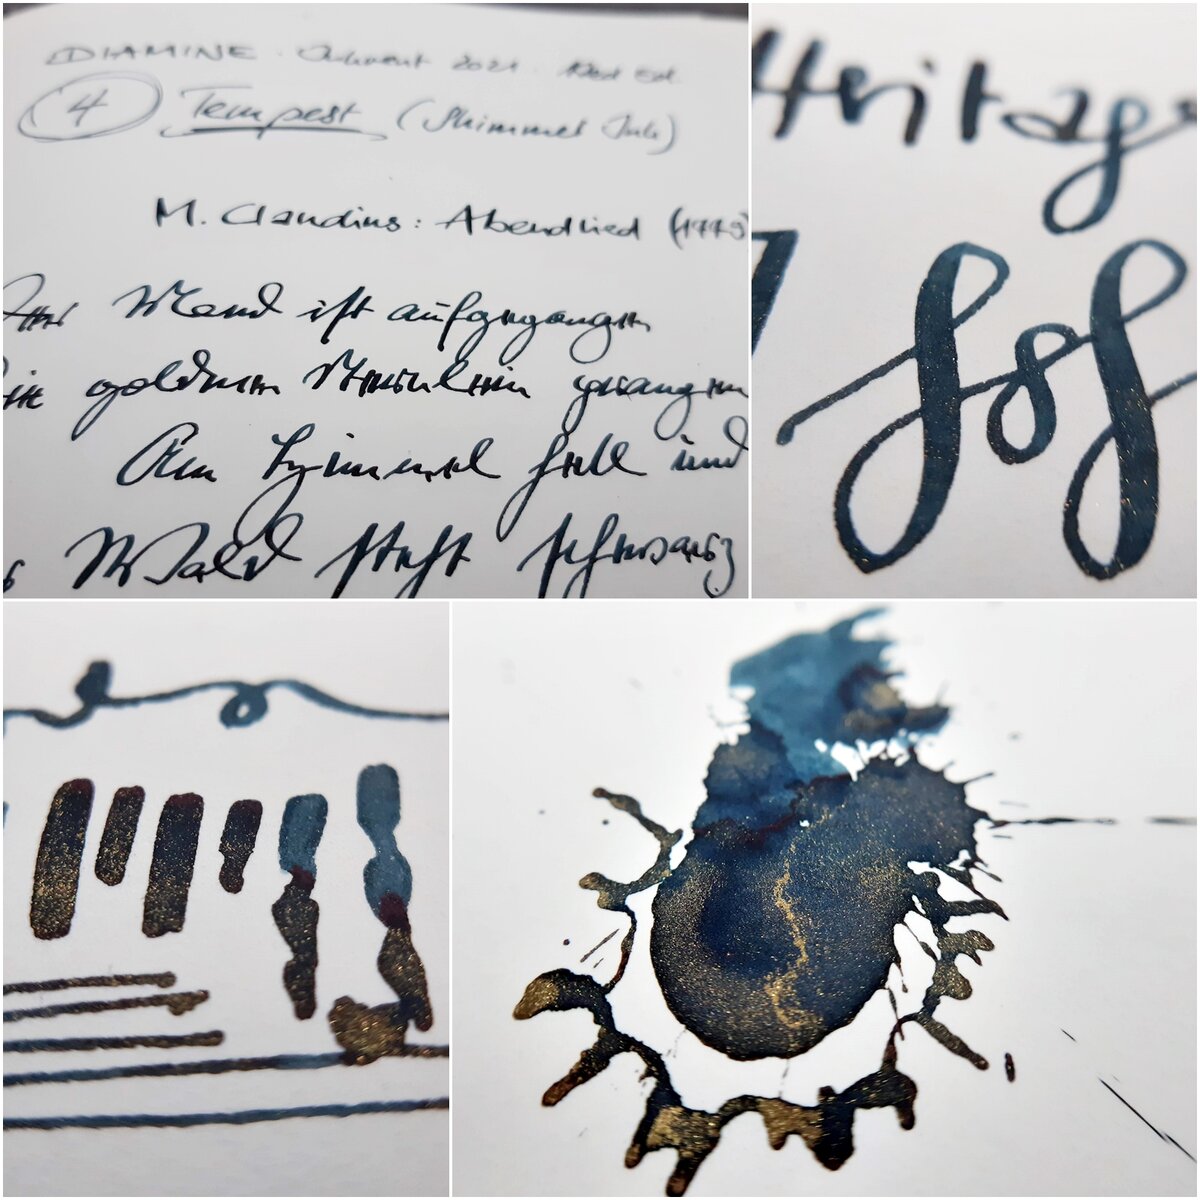 DIAMINE · Advent 2021 · Red Ed.
4 Tempest (Shimmer Ink)
M. Claudius: Abendlied (1779
Der Mond ist aufgegangen
Die goldnen Sternlein prangen
Am Himmel hell und
Wald steht schwarz